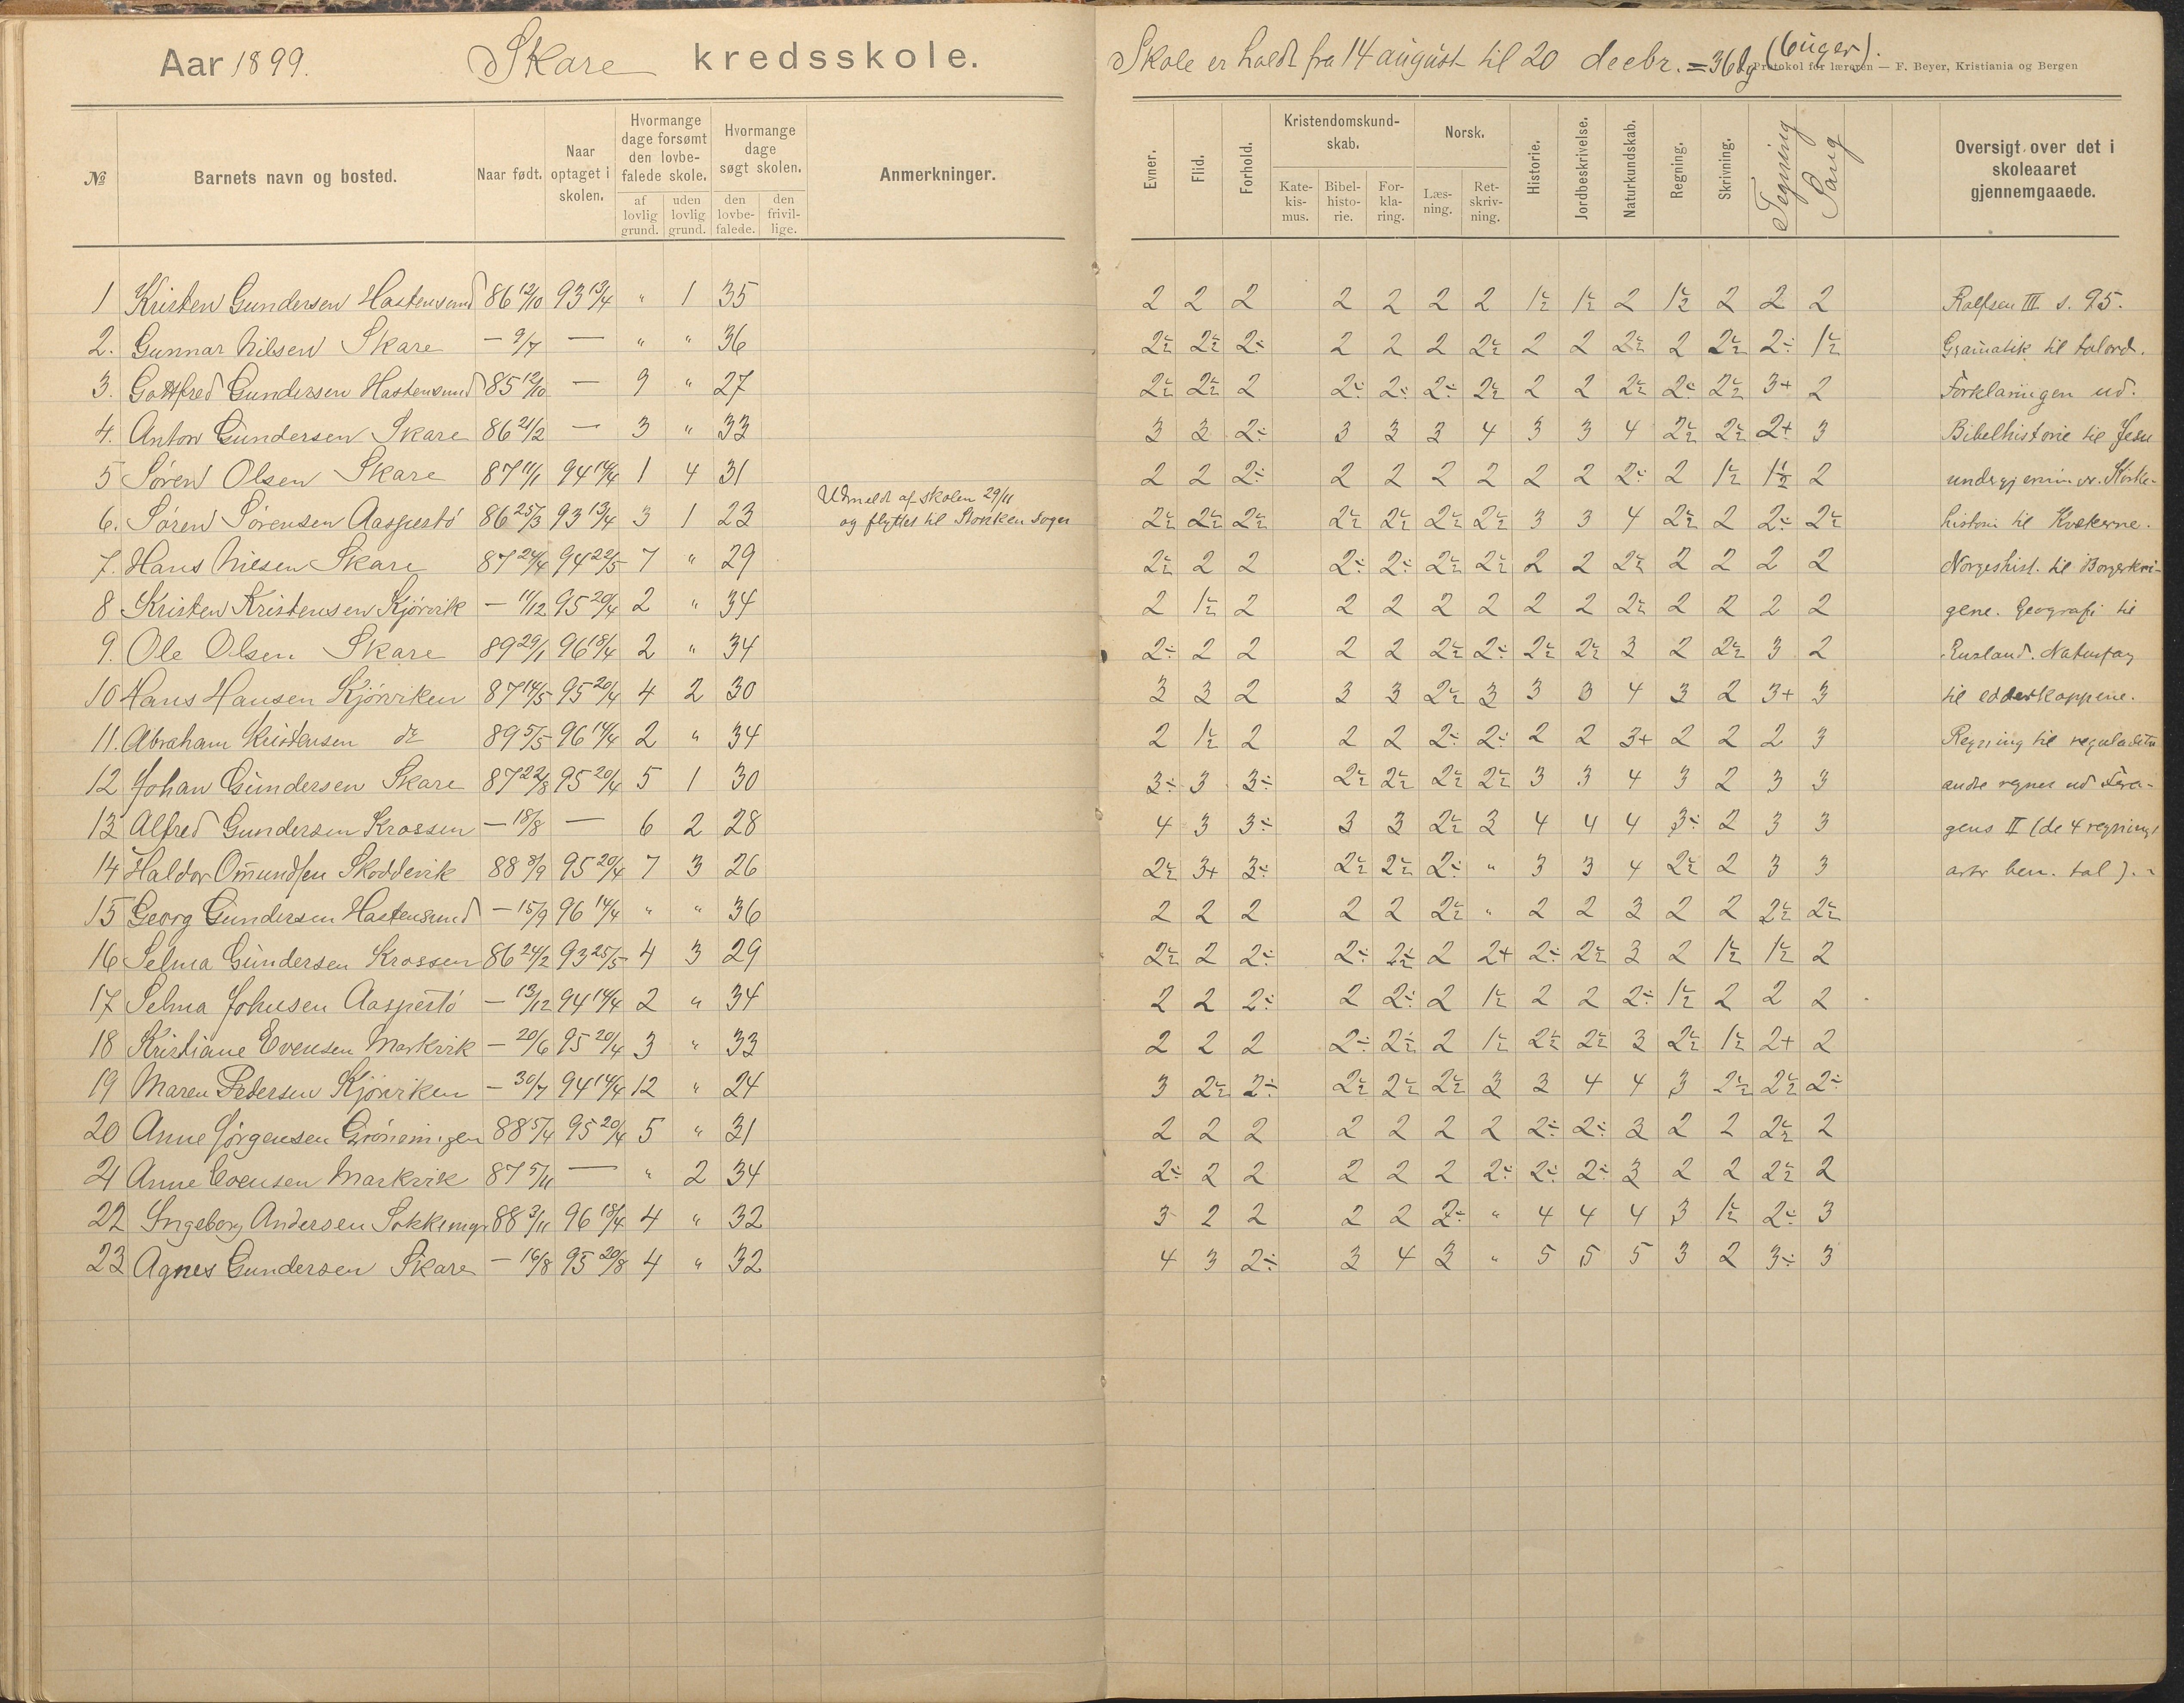 Aar 1899. Skare kredsskole.
Skole er holdt fra 14 august til 20 decbr. = 36 dg (6 uger).
Protokol for læreren — F. Beyer, Kristiania og Bergen
№ Barnets navn og bosted. Naar født. Naar optaget i skolen. Hvormange dage forsømt den lovbefalede skole. af lovlig grund. uden lovlig grund. Hvormange dage søgt skolen. den lovbefalede. den frivillige. Anmerkninger.
Evner. Flid. Forhold. Kristendomskundskab. Katekismus. Bibelhistorie. Forklaring. Norsk. Læsning. Retskrivning. Historie. Jordbeskrivelse. Naturkundskab. Regning. Skrivning. Tegning Sang Oversigt over det i skoleaaret gjennemgaaede.
1 Kristen Gundersen Hastensund 86 12/10 93 13/4 " 1 35 2 2 2 2 2 2 2 1½ 1½ 2 1½ 2 2 2 Rolfsen III s. 95.
2. Gunnar Nilsen Skare — 9/7 — " " 36 2½ 2½ 2÷ 2 2 2 2½ 2 2 2½ 2 2½ 2÷ 1½ Gramatik til talord.
3. Gottfred Gundersen Hastensund 85 12/10 — 9 " 27 2½ 2½ 2 2÷ 2÷ 2÷ 2½ 2 2 2½ 2÷ 2½ 3+ 2 Forklaringen ud.
4. Anton Gundersen Skare 86 21/2 — 3 " 33 3 3 2÷ 3 3 3 4 3 3 4 2½ 2½ 2+ 3 Bibelhistorie til Jesu
5 Søren Olsen Skare 87 11/1 94 14/4 1 4 31 2 2 2÷ 2 2 2 2 2 2 2÷ 2 1½ 1½ 2 undergjernin. Kirke-
6. Søren Sørensen Aaspestö 86 25/3 93 13/4 3 1 23 Udmeldt af skolen 29/11 og flyttet til Stokken Sogn 2½ 2½ 2½ 2½ 2½ 2½ 2½ 3 3 4 2½ 2 2÷ 2½ historie til Kvekerne.
7. Hans Nilsen Skare 87 24/4 94 22/5 7 " 29 2½ 2 2 2÷ 2÷ 2½ 2½ 2 2 2½ 2 2 2 2 Norgeshist. til Borgerkri-
8 Kristen Kristensen Kjörvik — 11/12 95 20/4 2 " 34 2 1½ 2 2 2 2 2 2 2 2½ 2 2 2 2 gene. Geografi til
9. Ole Olsen Skare 89 29/1 96 18/4 2 " 34 2÷ 2 2 2 2 2½ 2÷ 2½ 2½ 3 2 2½ 3 2 Rusland. Naturfag
10 Hans Hansen Kjörviken 87 14/5 95 20/4 4 2 30 3 3 2 3 3 2½ 3 3 3 4 3 2 3+ 3 til edderkoppene.
11. Abraham Kristensen do 89 5/5 96 14/4 2 " 34 2 1½ 2 2 2 2÷ 2÷ 2 2 3+ 2 2 2 3 Regning til reguladitri
12 Johan Gundersen Skare 87 22/8 95 20/4 5 1 30 3÷ 3 3÷ 2½ 2½ 2½ 2½ 3 3 4 3 2 3 3 andre regner ud
13 Alfred Gundersen Krossen — 18/8 — 6 2 28 4 3 3÷ 3 3 2½ 3 4 4 4 3÷ 2 3 3 gens II (de 4 regnings
14 Haldor Omundsen Skoddevik 88 8/9 95 20/4 7 3 26 2½ 3+ 3÷ 2½ 2½ 2÷ " 3 3 4 2½ 2 3 3 arter ben. tal).
15 Georg Gundersen Hastensund — 15/9 96 14/4 " " 36 2 2 2 2 2 2½ " 2 2 3 2 2 2½ 2½
16 Selma Gundersen Krossen 86 24/2 93 25/5 4 3 29 2½ 2 2÷ 2÷ 2½ 2 2+ 2÷ 2½ 3 2 1½ 1½ 2
17 Selma Johnsen Aaspestö — 13/12 94 14/4 2 " 34 2 2 2÷ 2 2÷ 2 1½ 2 2 2÷ 1½ 2 2 2
18 Kristiane Evensen Markvik — 20/6 95 20/4 3 " 33 2 2 2 2÷ 2½ 2 1½ 2½ 2½ 3 2½ 1½ 2+ 2
19 Maren Pedersen Kjörviken — 30/7 94 14/4 12 " 24 3 2½ 2÷ 2½ 2½ 2½ 3 3 4 4 3 2½ 2½ 2÷
20 Anne Jørgensen Grönningen 88 5/4 95 20/4 5 " 31 2 2 2 2 2 2 2 2÷ 2÷ 3 2 2 2½ 2
21 Anne Evensen Markvik 87 5/11 — " 2 34 2÷ 2 2 2 2 2 2÷ 2÷ 2÷ 3 2 2 2½ 2
22 Ingeborg Andersen 88 3/11 96 18/4 4 " 32 3 2 2 2 2 2÷ " 4 4 4 3 1½ 2÷ 3
23 Agnes Gundersen Skare — 16/8 95 20/8 4 " 32 4 3 2÷ 3 4 3 " 5 5 5 3 2 3÷ 3